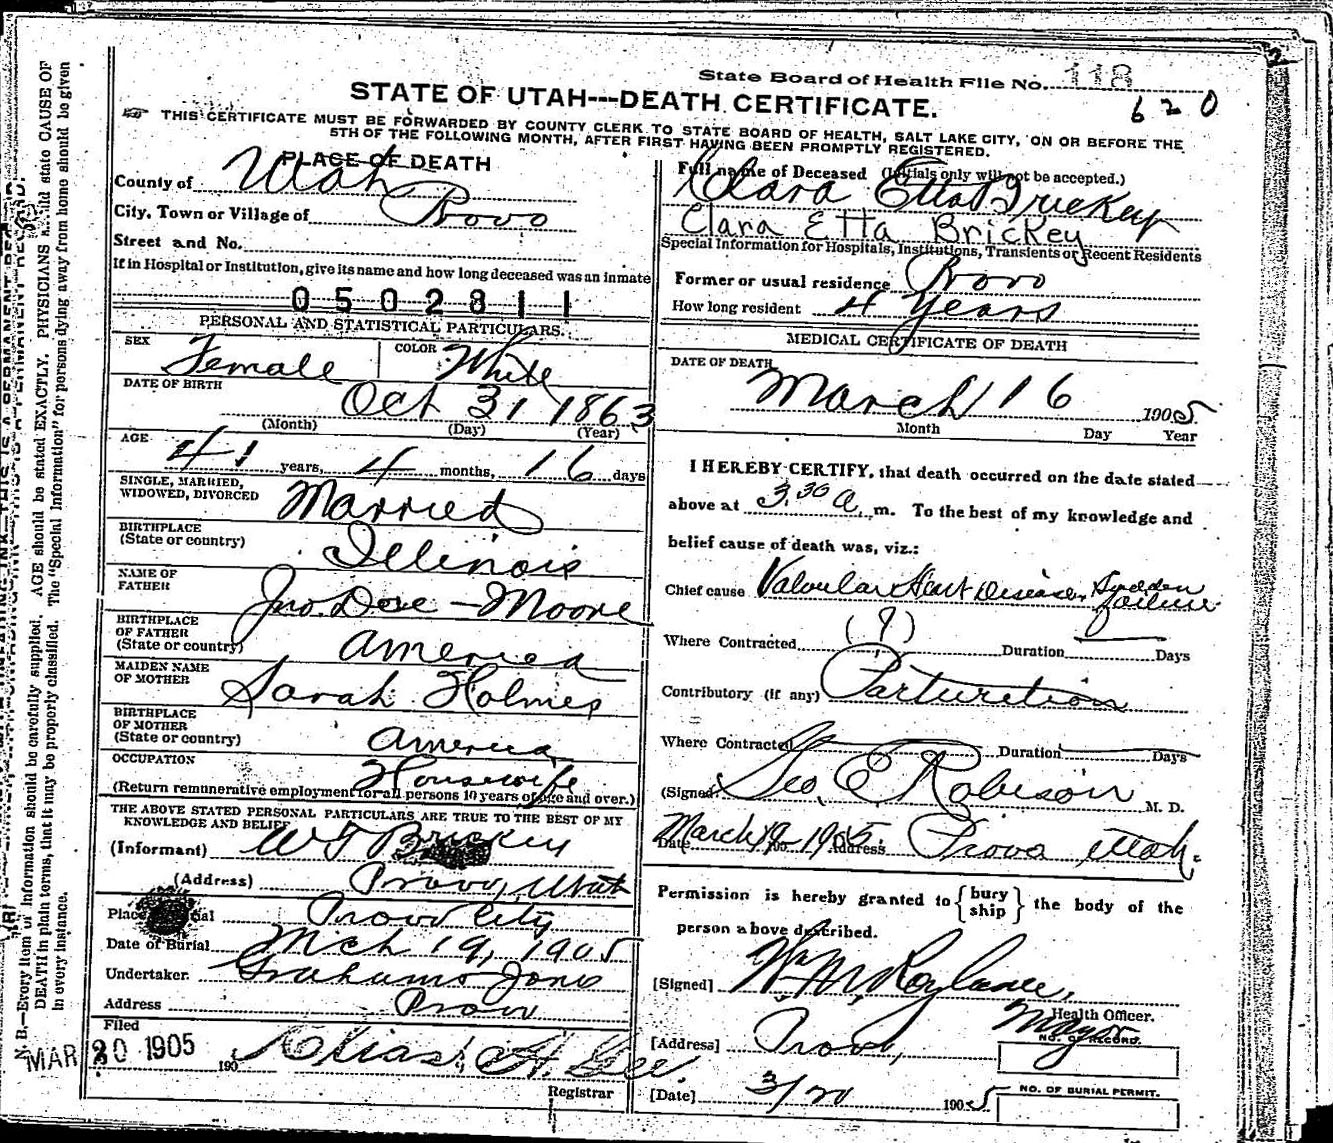 State Board of Health File No. 118
620
STATE OF UTAH---DEATH CERTIFICATE.
☞ THIS CERTIFICATE MUST BE FORWARDED BY COUNTY CLERK TO STATE BOARD OF HEALTH, SALT LAKE CITY, ON OR BEFORE THE
5TH OF THE FOLLOWING MONTH, AFTER FIRST HAVING BEEN PROMPTLY REGISTERED.
PLACE OF DEATH
County of Utah
City, Town or Village of Provo
Street and No.
If in Hospital or Institution, give its name and how long deceased was an inmate
0502811
PERSONAL AND STATISTICAL PARTICULARS.
SEX Female COLOR White
DATE OF BIRTH Oct 31 1863
(Month) (Day) (Year)
AGE 41 years, 4 months, 16 days
SINGLE, MARRIED,
WIDOWED, DIVORCED Married
BIRTHPLACE
(State or country) Illinois
NAME OF
FATHER Jno. Doe - Moore
BIRTHPLACE
OF FATHER
(State or country) America
MAIDEN NAME
OF MOTHER Sarah Holmes
BIRTHPLACE
OF MOTHER
(State or country) America
OCCUPATION Housewife
(Return remunerative employment for all persons 10 years of age and over.)
THE ABOVE STATED PERSONAL PARTICULARS ARE TRUE TO THE BEST OF MY
KNOWLEDGE AND BELIEF
(Informant) Brickey
(Address) Provo, Utah
Place Provo City
Date of Burial Mch 19, 1905
Undertaker. Jons
Address Provo
Filed
MAR 20 1905 190
Elias A. Gee.
Registrar
Full name of Deceased (Initials only will not be accepted.)
Clara Etta Brickey
Clara Etta Brickey
Special Information for Hospitals, Institutions, Transients or Recent Residents
Former or usual residence Provo
How long resident 4 Years
MEDICAL CERTIFICATE OF DEATH
DATE OF DEATH
March 16 1905
Month Day Year
I HEREBY CERTIFY, that death occurred on the date stated
above at 3.30 A. m. To the best of my knowledge and
belief cause of death was, viz.:
Chief cause Valvular Heart Disease, Sudden failure
Where Contracted (?) Duration Days
Contributory (if any) Parturition
Where Contracted Duration Days
(Signed Geo. E Robison M. D.
Date March 19 1905 Address Provo Utah.
Permission is hereby granted to {bury ship} the body of the
person above described.
[Signed] Wm M. Roylance,
Health Officer.
Mayor
[Address] Provo,
NO. OF RECORD.
[Date] 3/20 1905
NO. OF BURIAL PERMIT.
N. B.—Every item of information should be carefully supplied. AGE should be stated EXACTLY. PHYSICIANS should state CAUSE OF
DEATH in plain terms, that it may be properly classified. The "Special Information" for persons dying away from home should be given
in every instance.